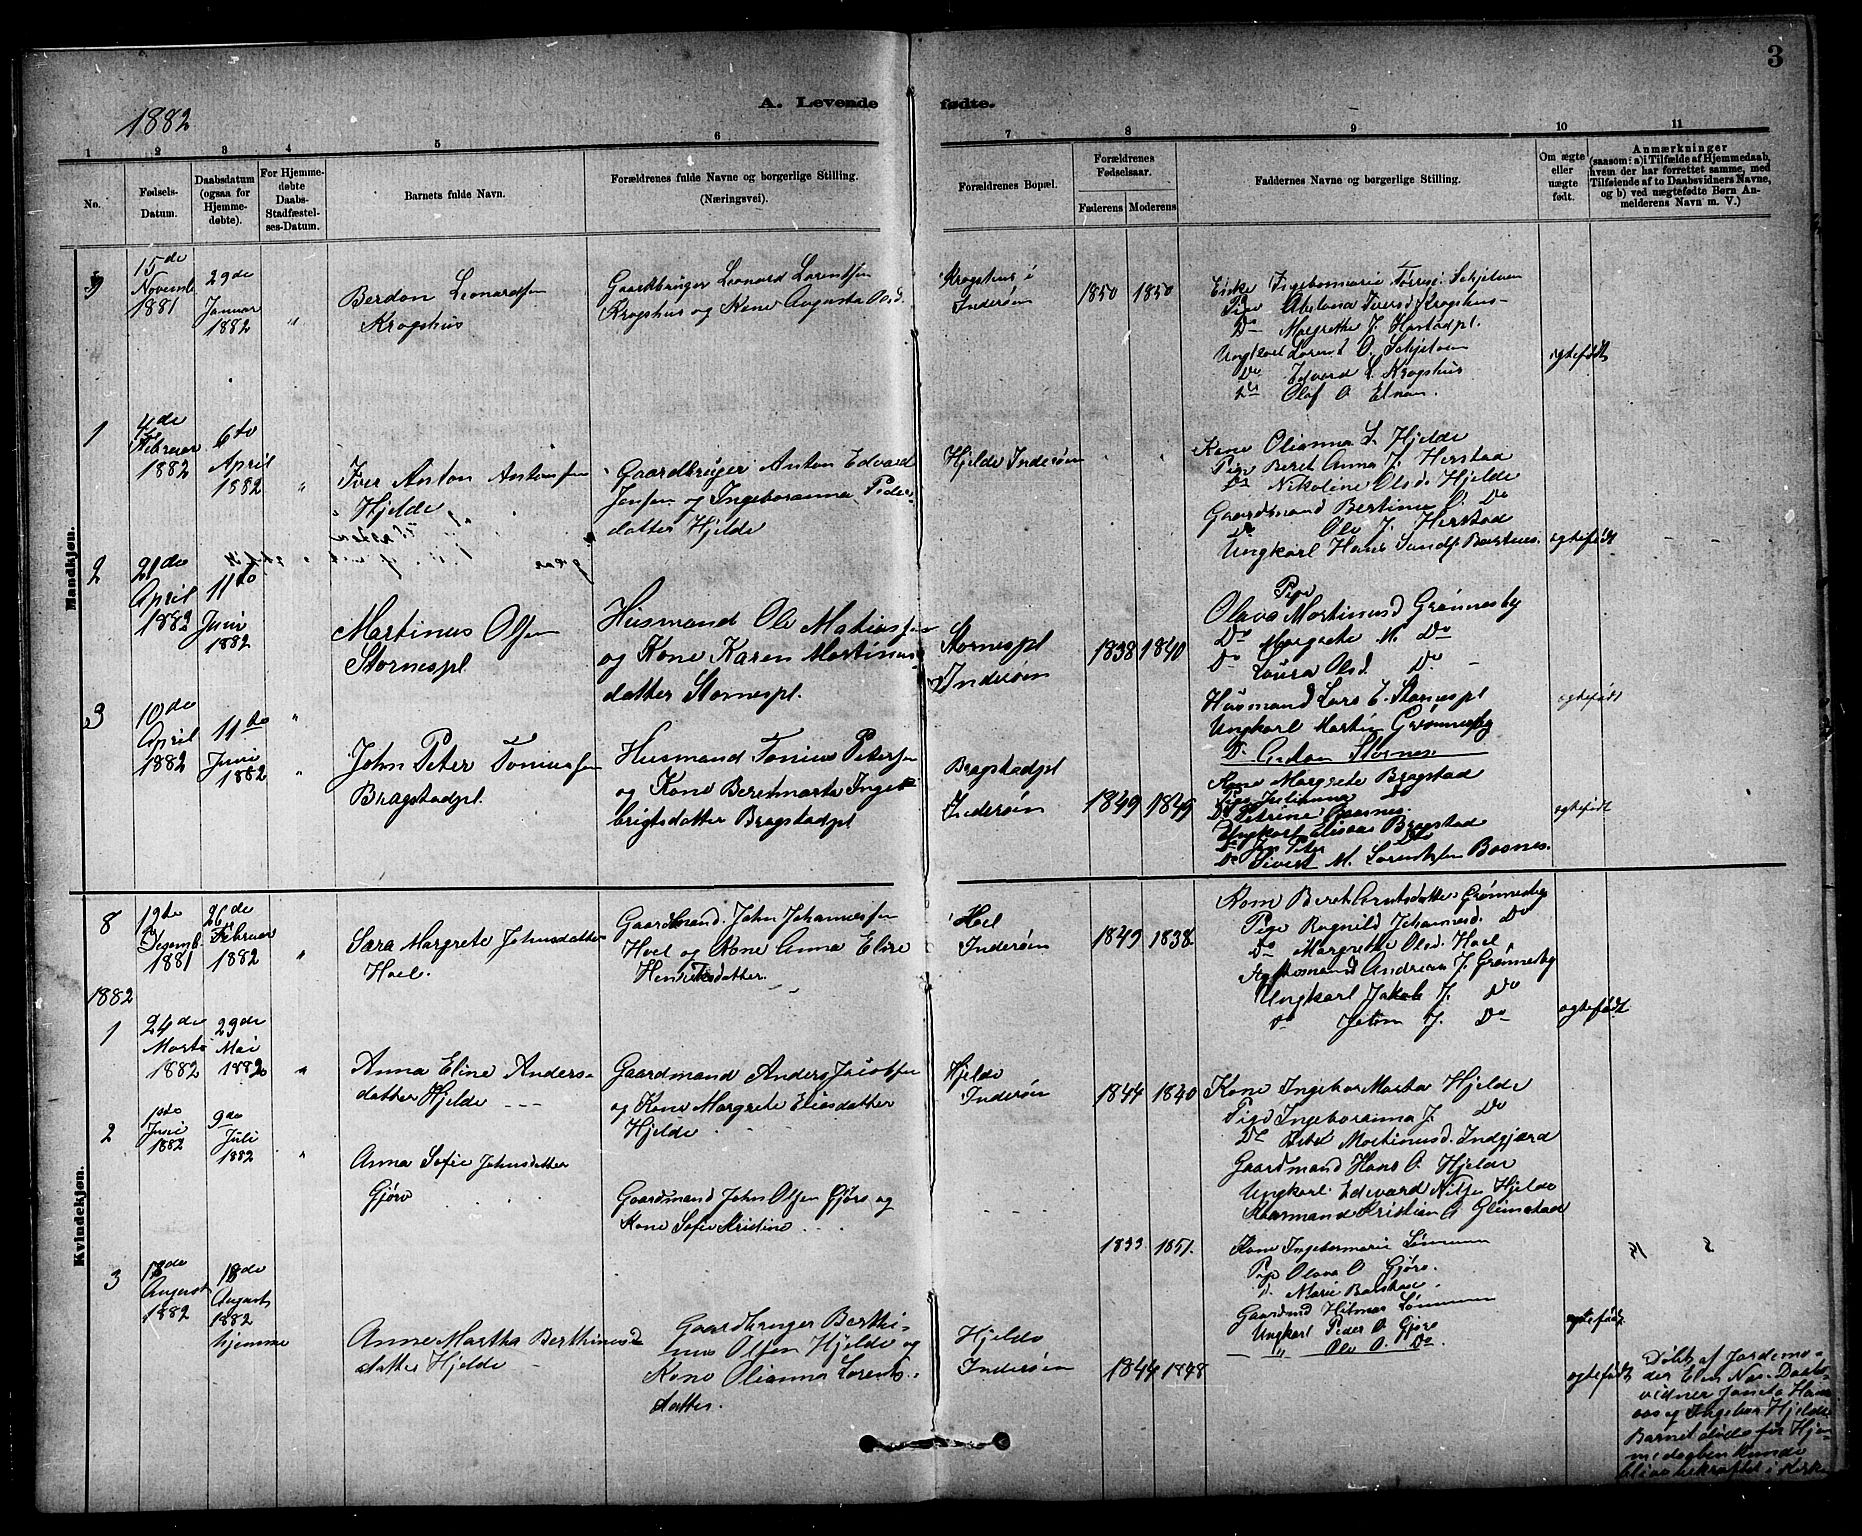 3
A. Levende fødte.
1882
1 2 3 4 5 6 7 8 9 10 11
No.
Fødsels-
Datum.
Daabsdatum
(ogsaa for
Hjemme-
døbte).
For Hjemme-
døbte
Daabs-
Stadfæstel-
ses-Datum.
Barnets fulde Navn.
Forældrenes fulde Navne og borgerlige Stilling.
(Næringsvei).
Forældrenes Bopæl.
Forældrenes
Fødselsaar.
Faderens Moderens
Faddernes Navne og borgerlige Stilling.
Om ægte
eller
uægte
født.
Anmærkninger
(saasom: a) i Tilfælde af Hjemmedaab,
hvem der har forrettet samme, med
Tilføiende af to Daabsvidners Navne,
og b) ved uægtefødte Børn An-
melderens Navn m. V.)
Mandkjøn.
15de
Novemb
1881
29de
Januar
1882
"
Berdon Leonardsen
Krogshus
Gaardbruger Leonard Lorentsen
Krogshus og Kone Augusta Olsd.
Krogshus i
Inderøen
1850 1850
Enke Ingebormarie Skjelven
Pige Abelona Iversd. Krogshus
Do Margrethe J. Hastadpl.
Ungkarl Lorent O. Skjelven
Do Edvard L. Krogshus
Do Olof O. Elnan.
egtefødt
1
4de
Februar
1882
6te
April
1882
"
Iver Anton Antonsen
Hjelde
Gaardbruger Anton Edvard
Jensen og Ingeboranna Peder-
datter Hjelde
Hjelde Inderøen
Kone Olianna L. Hjelde
Pige Beret Anna J. Herstad
Do Nikoline Olsd. Hjelde
Gaardmand Bertinus O. Do
Do Ole J. Herstad
Ungkarl Hans Sandp. Bartnes.
egtefødt
2
21de
April
1882
11te
Juni
1882
Martinus Olsen
Stornespl
Husmand Ole Matiasen
og Kone Karen Martinus
datter Stornespl.
Stornespl
Inderøen
1838 1840
Pige
Olava Martinusd Grønnesby
Do Margrete M. Do
Do Laura Olsd. Do
Husmand Lars E. Stornespl
Ungkarl Martin Grønnesby
D. Anton Stornes.
egtefødt
3
10de
April
1882
11te
Juni
1882
"
John Peter Toniusen
Bragstadpl.
Husmand Tonius Petersen
og Kone Beretmarta Inge-
brigtsdatter Bragstadpl
Bragstadpl
Inderøen
1849 1849
Kone Margrete Bragstad
Pige Julianna Do
Do Petrine
Ungkarl Elias Bragstad
Do Jon Peter Do
Do Sivert M. Lorentsen Bosnes.
egtefødt
Kvindekjøn.
8
19de
Desemb.
1881
26de
Februar
1882
"
Sara Margrete Johnsdatter
Hoel.
Gaardmand. John Johannesen
Hoel og Kone Anna Elise
Henriksdatter.
Hoel
Inderøen
1849 1838
Kone Beret Arntsdatter Grønnesby
Pige Ragnild Johannesd. Do
Do Margrethe Olsd. Hoel
Andreas J. Grønnesby
Ungkarl Jakob J. Do
Do J. Do
egtefødt
1882
1
24de
Marts
1882
29de
Mai
1882
"
Anna Eline Anders-
datter Hjelde
Gaardmand Anders Jacobsen
og Kone Margrete Eliasdatter
Hjelde
Hjelde
Inderøen
1844 1840
Kone Ingebor Marta Hjelde
Pige Ingeboranna J. Do
Do Martinusd. Indgjærd
Gaardmand Hans O. Hjelde
Ungkarl Edevard Nilsen Hjelde
Kaarmand Kristian A. Glimstad
2
1ste
Juni
1882
9de
Juli
1882
"
Anna Sofie Johnsdatter
Gjørv
Gaardmand John Olsen Gjørv og
Kone Sofie Kristine
1833 1851.
Kone Ingebormarie
Pige Olava O. Gjørv.
D. Marie
Gaardmd Hilmar
Ungkarl Peder O. Gjørv
" Ole O. Do.
egtefødt
3
18de
August
1882
18de
August
1882
hjemme
Anne Martha Berthinusd
datter Hjelde
Gaardbruger Berthi-
nus Olsen Hjelde og
Kone Olianna Lorents-
datter.
Hjelde
Inderøen
1844 1848
egtefødt
Døbt af Jordemo-
der Elen Daabs-
vidner
og Ingebor Hjelde
Barnet døde før Hjem-
medaaben kunde
blive bekræftet i Kirke